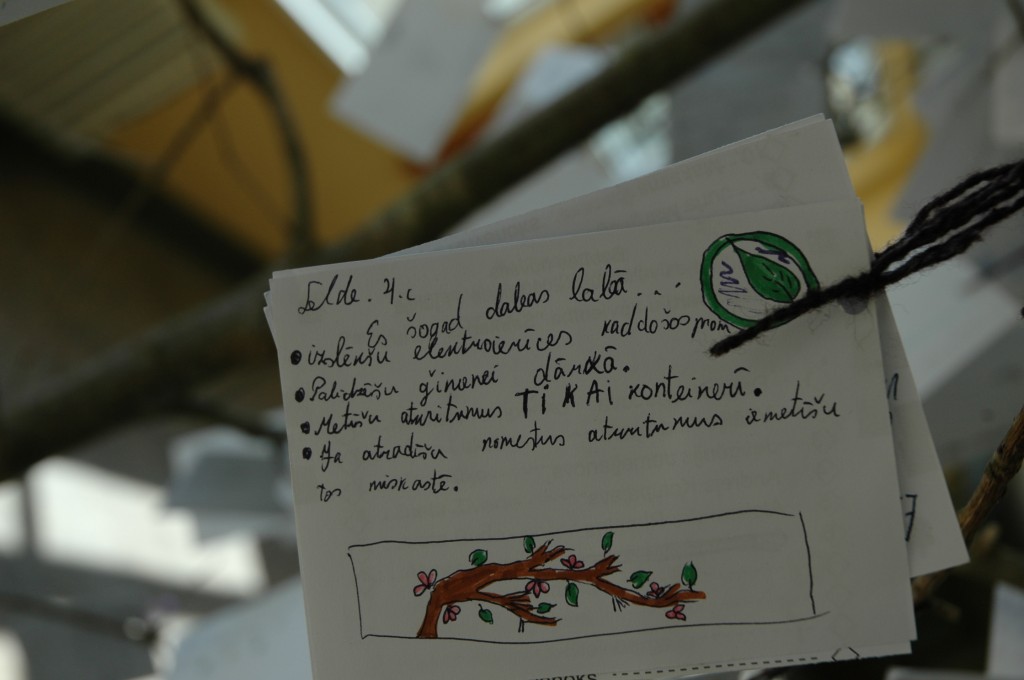 Zelda. 4.c
Es šogad dabas labā...
• izslēkšu elektroierīces kad došos prom
• Palīdzēšu ģimenei dārzkā.
• Metīšu atkritumus TIKAI konteinerī.
• Ja atradīšu nomestus atkritumus izmetīšu
tos miskastē.